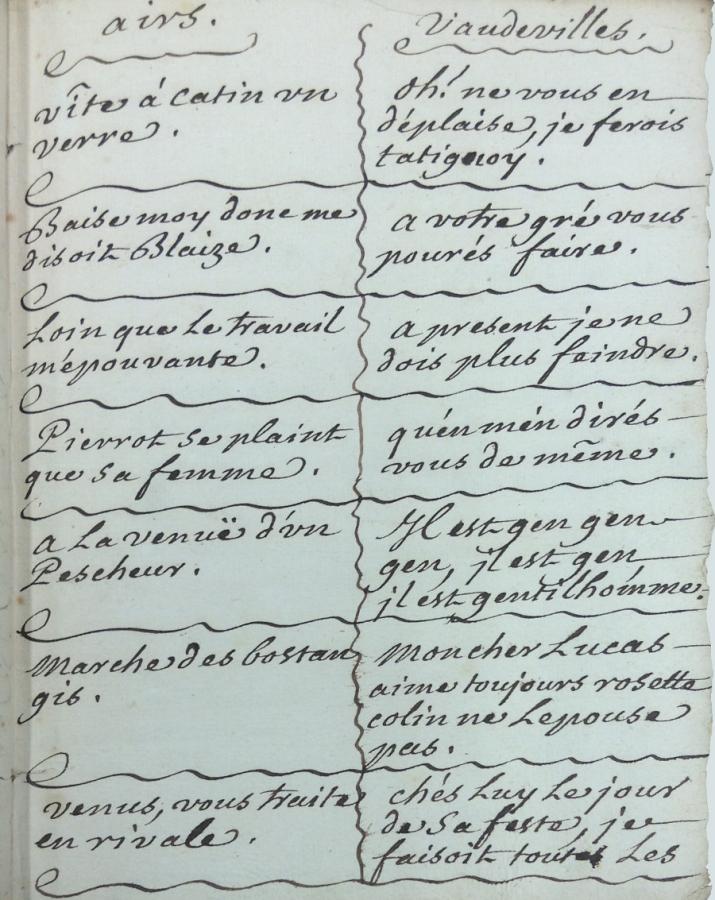 airs.
vîte á catin vn
verre.
Baise moy donc me
disoit Blaize.
Loin que Le travail
m'épouvante.
Pierrot se plaint
que sa femme.
a La venuë d'vn
Pescheur.
Marche des bostan
gis.
venus, vous traite
en rivale.
Vaudevilles.
oh! ne vous en
déplaise, je ferois
tatiguoy.
a votre gré vous
pourés faire.
a present je ne
dois plus feindre.
qu'en m'en dirés
vous de même.
Il est gen gen
gen, jl est gen
jl est gentilhomme.
Mon cher Lucas
aime toujours rosette
colin ne Lepouse
pas.
chés Luy Le jour
de sa feste, je
faisoit toutes Les